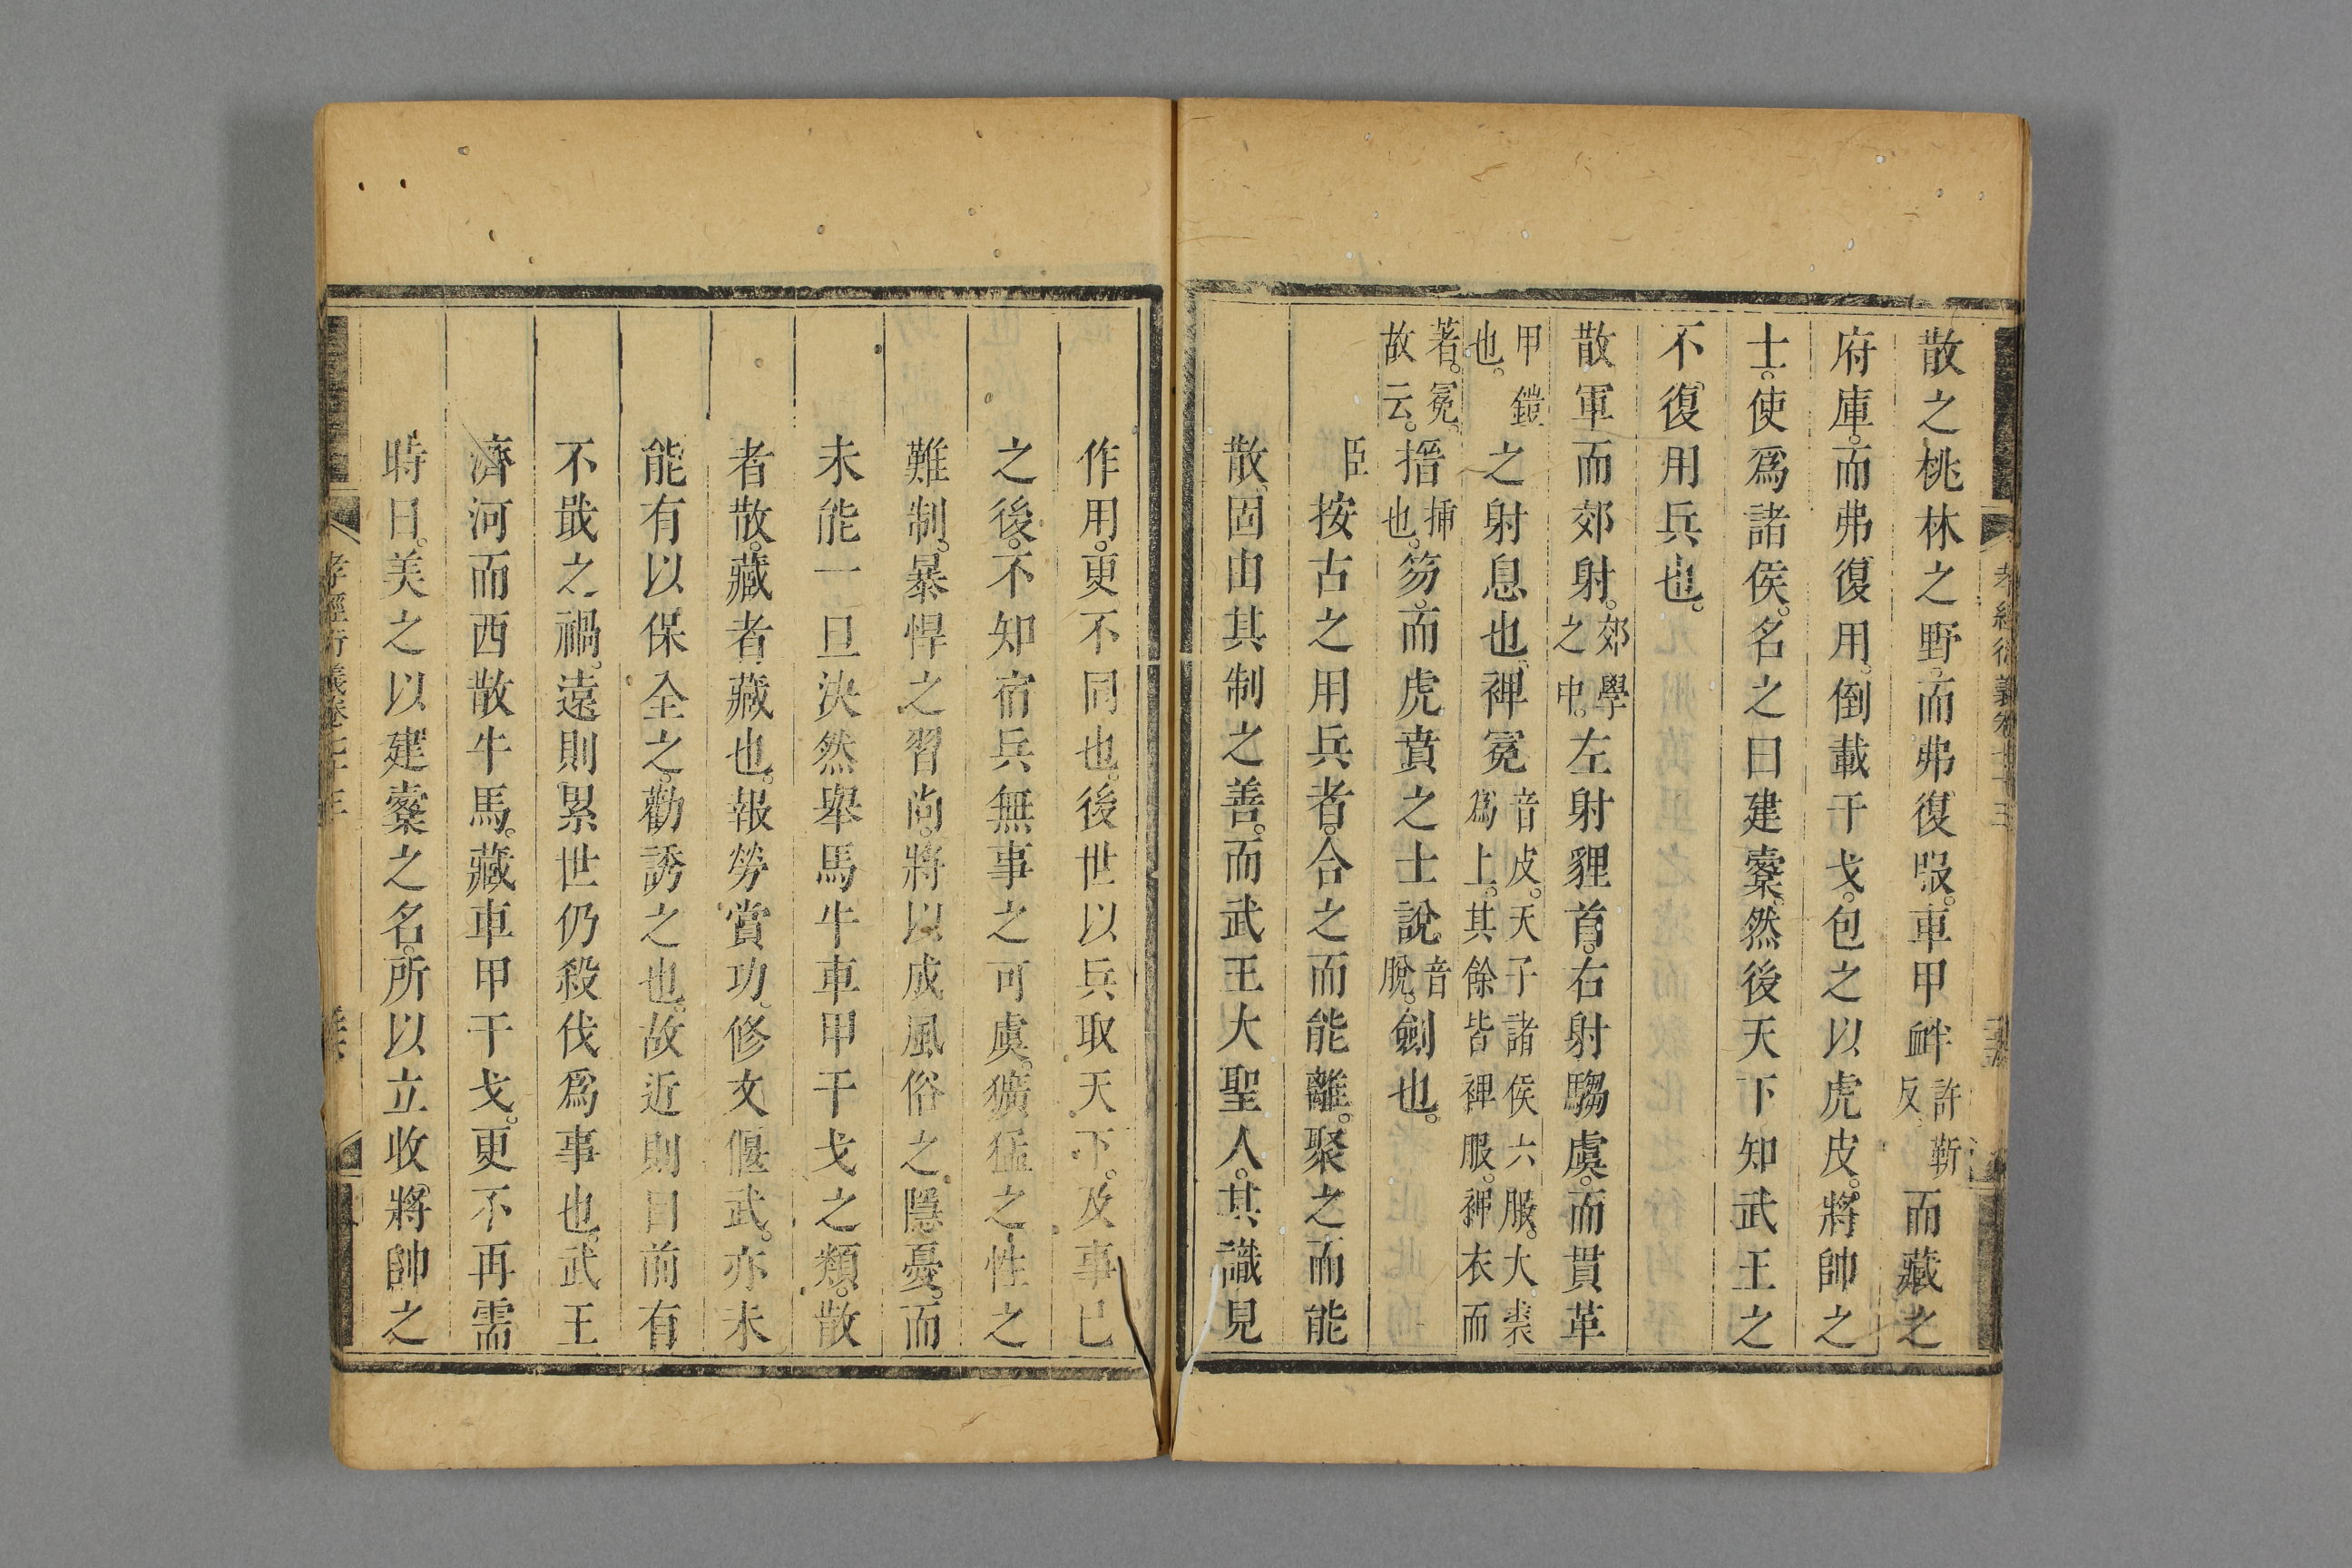 散之桃林之野。而弗復服。車甲衅許靳反而藏之
府庫。而弗復用。倒載干戈。包之以虎皮。將帥之
士。使爲諸侯。名之曰建櫜。然後天下知武王之
不復用兵也。
散軍而郊射。郊學之中。左射貍首。右射騶虞。而貫革
之射息也。裨冕音皮。天子諸侯六服。大裘爲上。其餘皆裨服。裨衣而
著。冕。故云。搢揷也。笏。而虎賁之士說音脫。劍也。
甲鎧也。
臣按古之用兵者。合之而能離。聚之而能
散。固由其制之善。而武王大聖人。其識見
作用。更不同也。後世以兵取天下。及事已
之後。不知宿兵無事之可虞。獷猛之性之
難制。暴悍之習尚。將以成風俗之隱憂。而
未能一旦決然舉馬牛車甲干戈之類。散
者散。藏者藏也。報勞賞功。修文偃武。亦未
能有以保全之。勸誘之也。故近則目前有
不戢之禍。遠則累世仍殺伐爲事也。武王
濟河而西散牛馬。藏車甲干戈。更不再需
時日。美之以建櫜之名。所以立收將帥之
孝經衍義卷